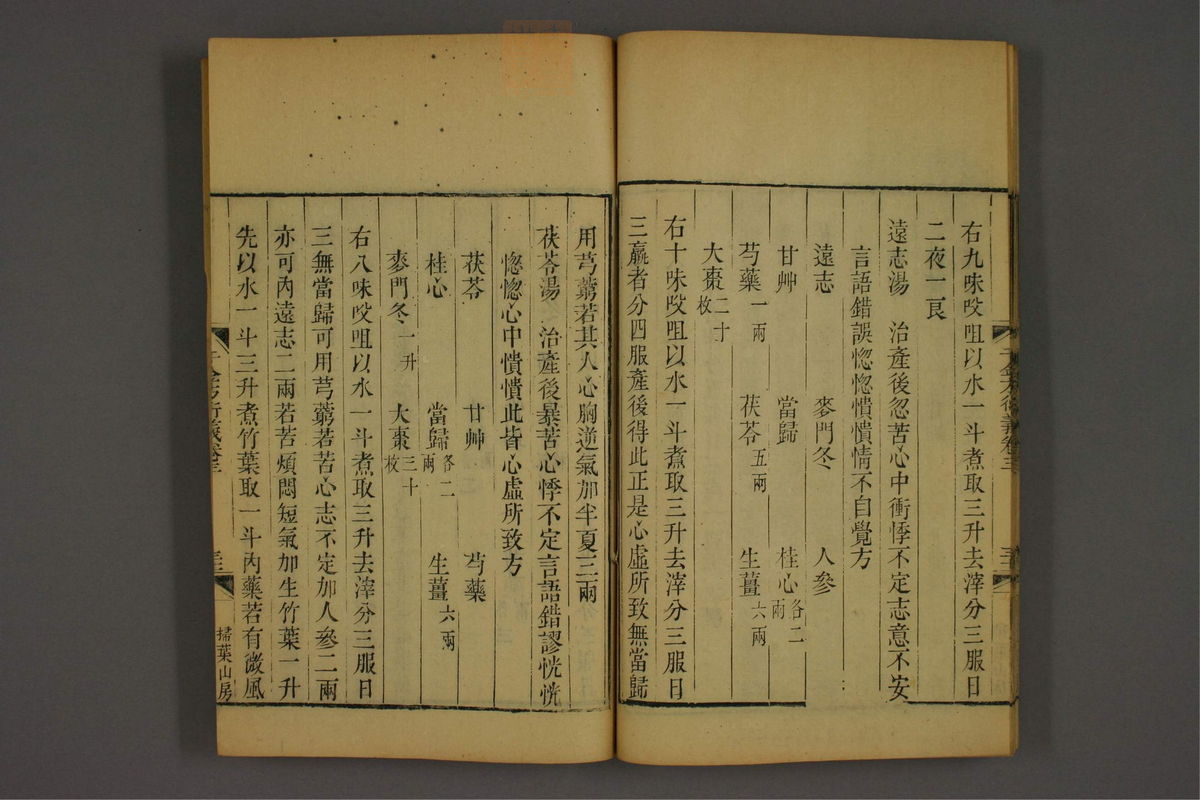 右九味㕮咀以水一斗煮取三升去滓分三服日
二夜一良
遠志湯　治產後忽苦心中衝悸不定志意不安
言語錯誤惚惚憒憒情不自覺方
遠志　麥門冬　人參
甘艸　當歸　桂心各二兩
芍藥一兩　茯苓五兩　生薑六兩
大棗二十枚
右十味㕮咀以水一斗煮取三升去滓分三服日
三羸者分四服產後得此正是心虛所致無當歸
用芎藭若其人心胸逆氣加半夏三兩
茯苓湯　治產後暴苦心悸不定言語錯謬恍恍
惚惚心中憒憒此皆心虛所致方
茯苓　甘艸　芍藥
桂心　當歸各二兩　生薑六兩
麥門冬一升　大棗三十枚
右八味㕮咀以水一斗煮取三升去滓分三服日
三無當歸可用芎藭若苦心志不定加人參二兩
亦可內遠志二兩若苦煩悶短氣加生竹葉一升
先以水一斗三升煮竹葉取一斗內藥若有微風
千金方衍義卷三
掃葉山房